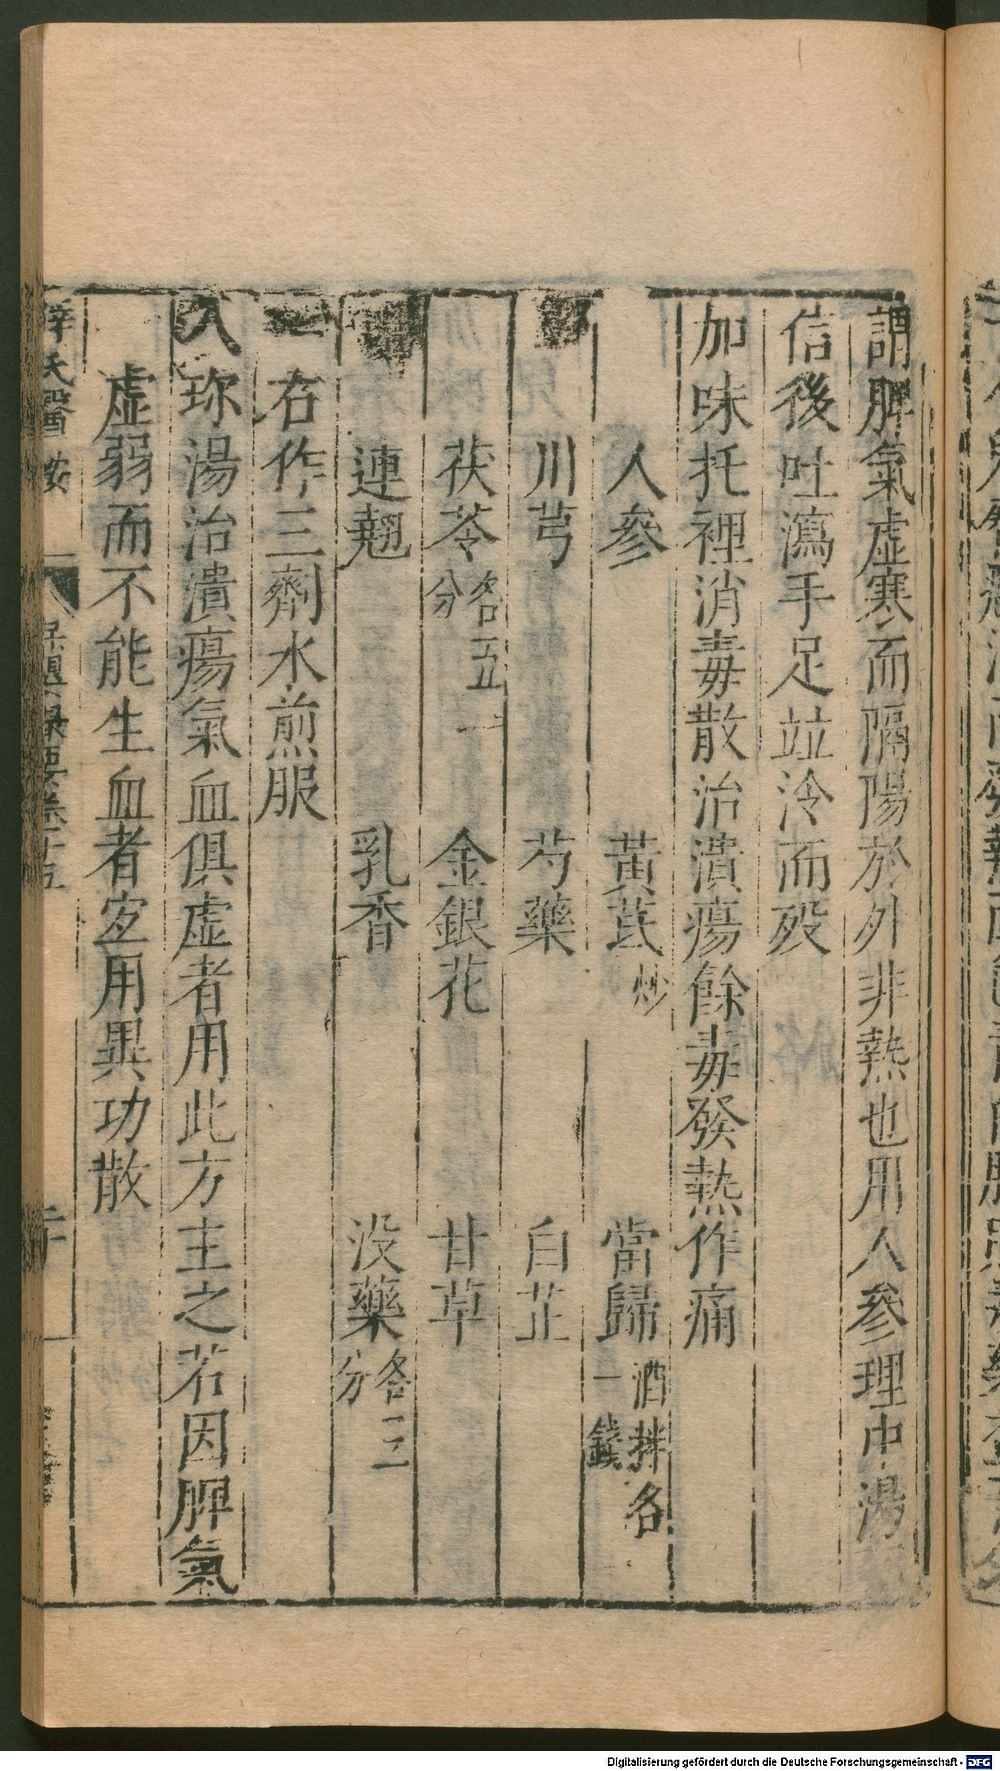 謂脾氣虛寒而隔陽於外非熱也用人參理中湯
信後吐瀉手足竝冷而歿
加味托裡消毒散治潰瘍餘毒發熱作痛
人參 黃芪炒 當歸酒拌各一錢
川芎 芍藥 白芷
茯苓各五分 金銀花 甘草
連翹 乳香 没藥各三分
右作三劑水煎服
八珍湯治潰瘍氣血俱虛者用此方主之若因脾氣
虛弱而不能生血者宜用異功散
薛氏醫按 保嬰撮要卷十五
Digitalisierung gefördert durch die Deutsche Forschungsgemeinschaft - DFG